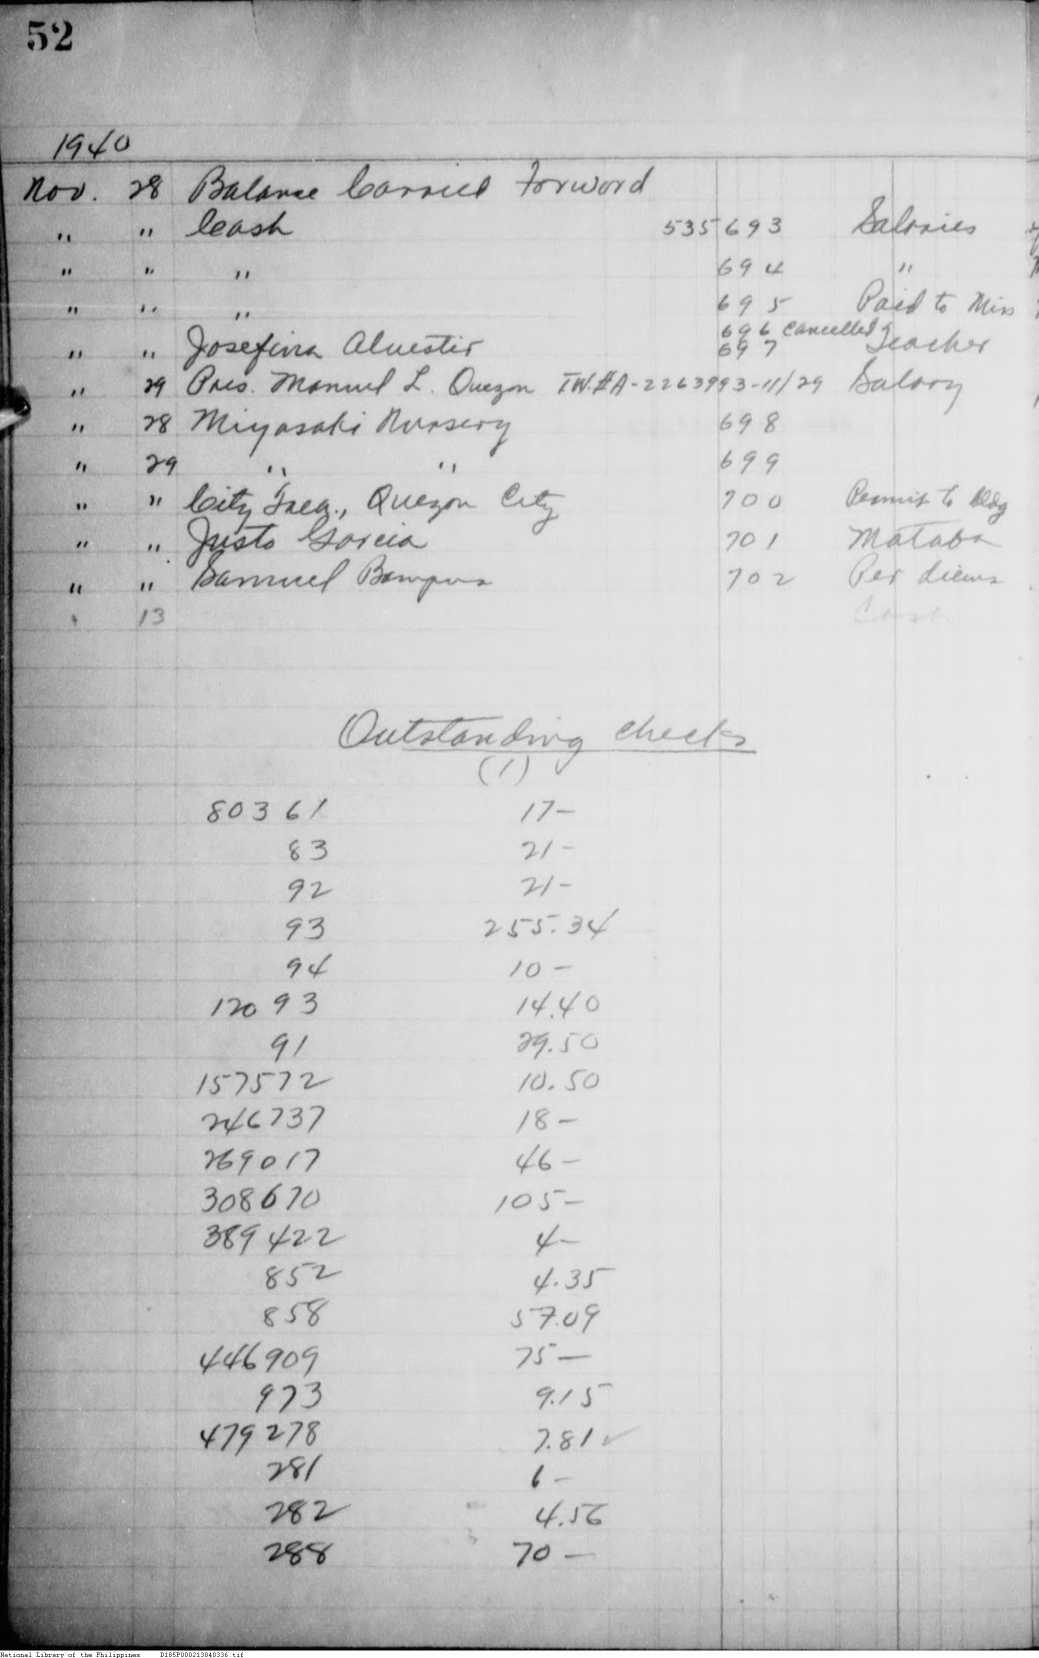 52
1940
Nov. 28 Balance Carried Forword
" " Cash 535693 Salories
" " " 694 "
" " " 695 Paid to Miss
696 Cancelled
" " Josefina 697 Teacher
" 29 Pres. Manuel L. Quezon T.W.#A-2263993-11/29 Salary
" 28 Miyasaki Nursery 698
" 29 " " 699
" " City Trea., Quezon City 700 Permit to Bldg
" " Justo Garcia 701 Mataba
" " Samuel 702 Per diems
" 13 Cash
Outstanding checks
(1)
80361 17-
83 21-
92 21-
93 255.34
94 10-
12093 14.40
91 29.50
157572 10.50
246737 18-
269017 46-
308670 105-
389422 4-
852 4.35
858 57.09
446909 75-
973 9.15
479278 7.81✓
281 6-
282 4.56
288 70-
National Library of the Philippines D185P000213840336.tif